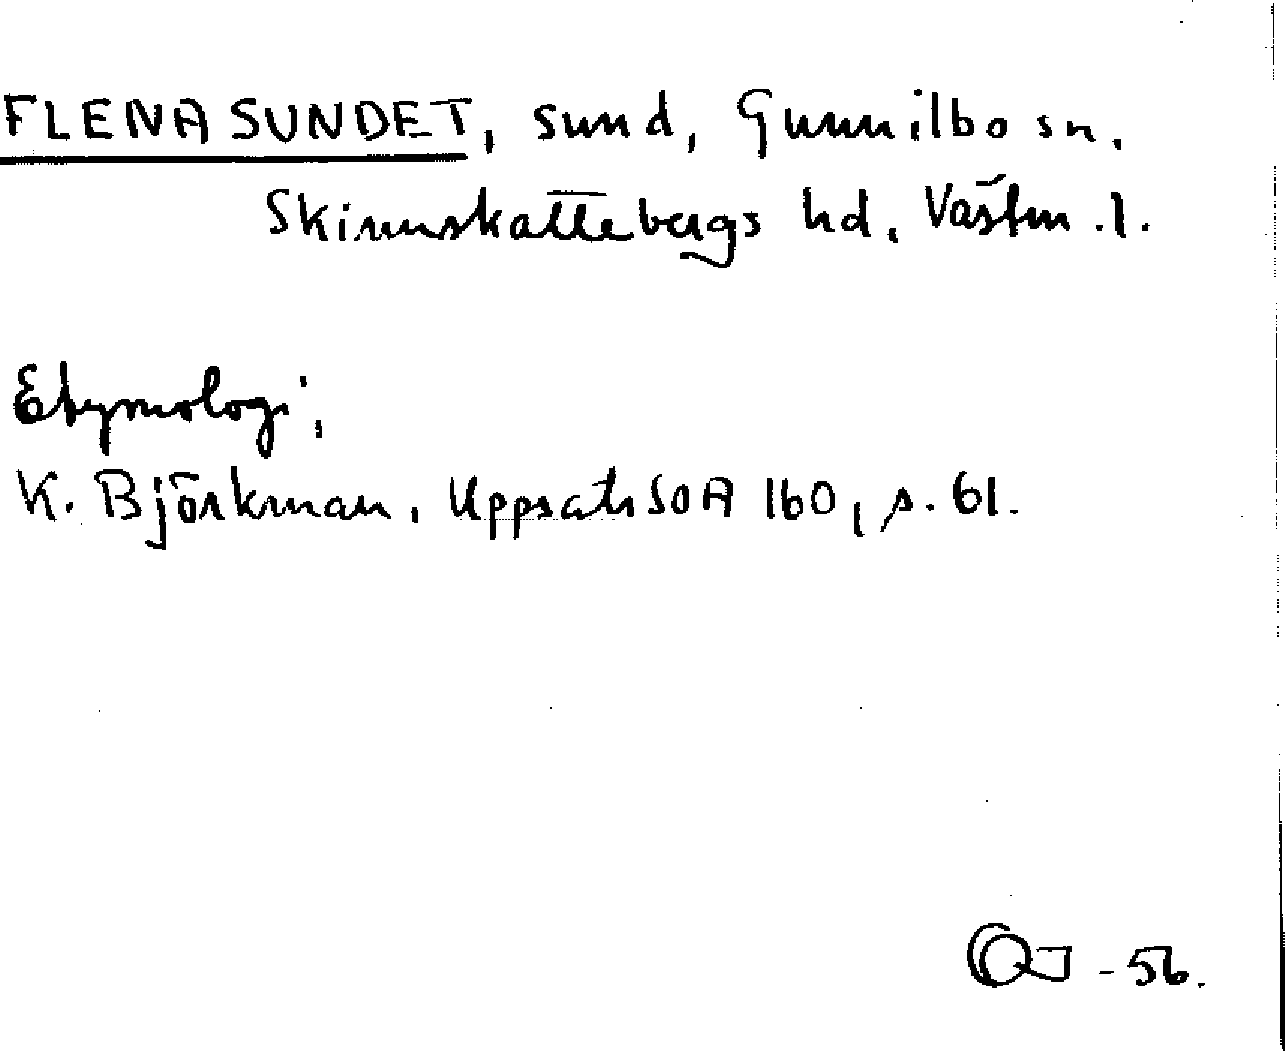 FLENASUNDET, sund, Gunnilbo sn.
Skinnskattebergs hd, Västm.l.
Etymologi,
K. Björkman, Uppsats SOA 160, s. 61.
-56.